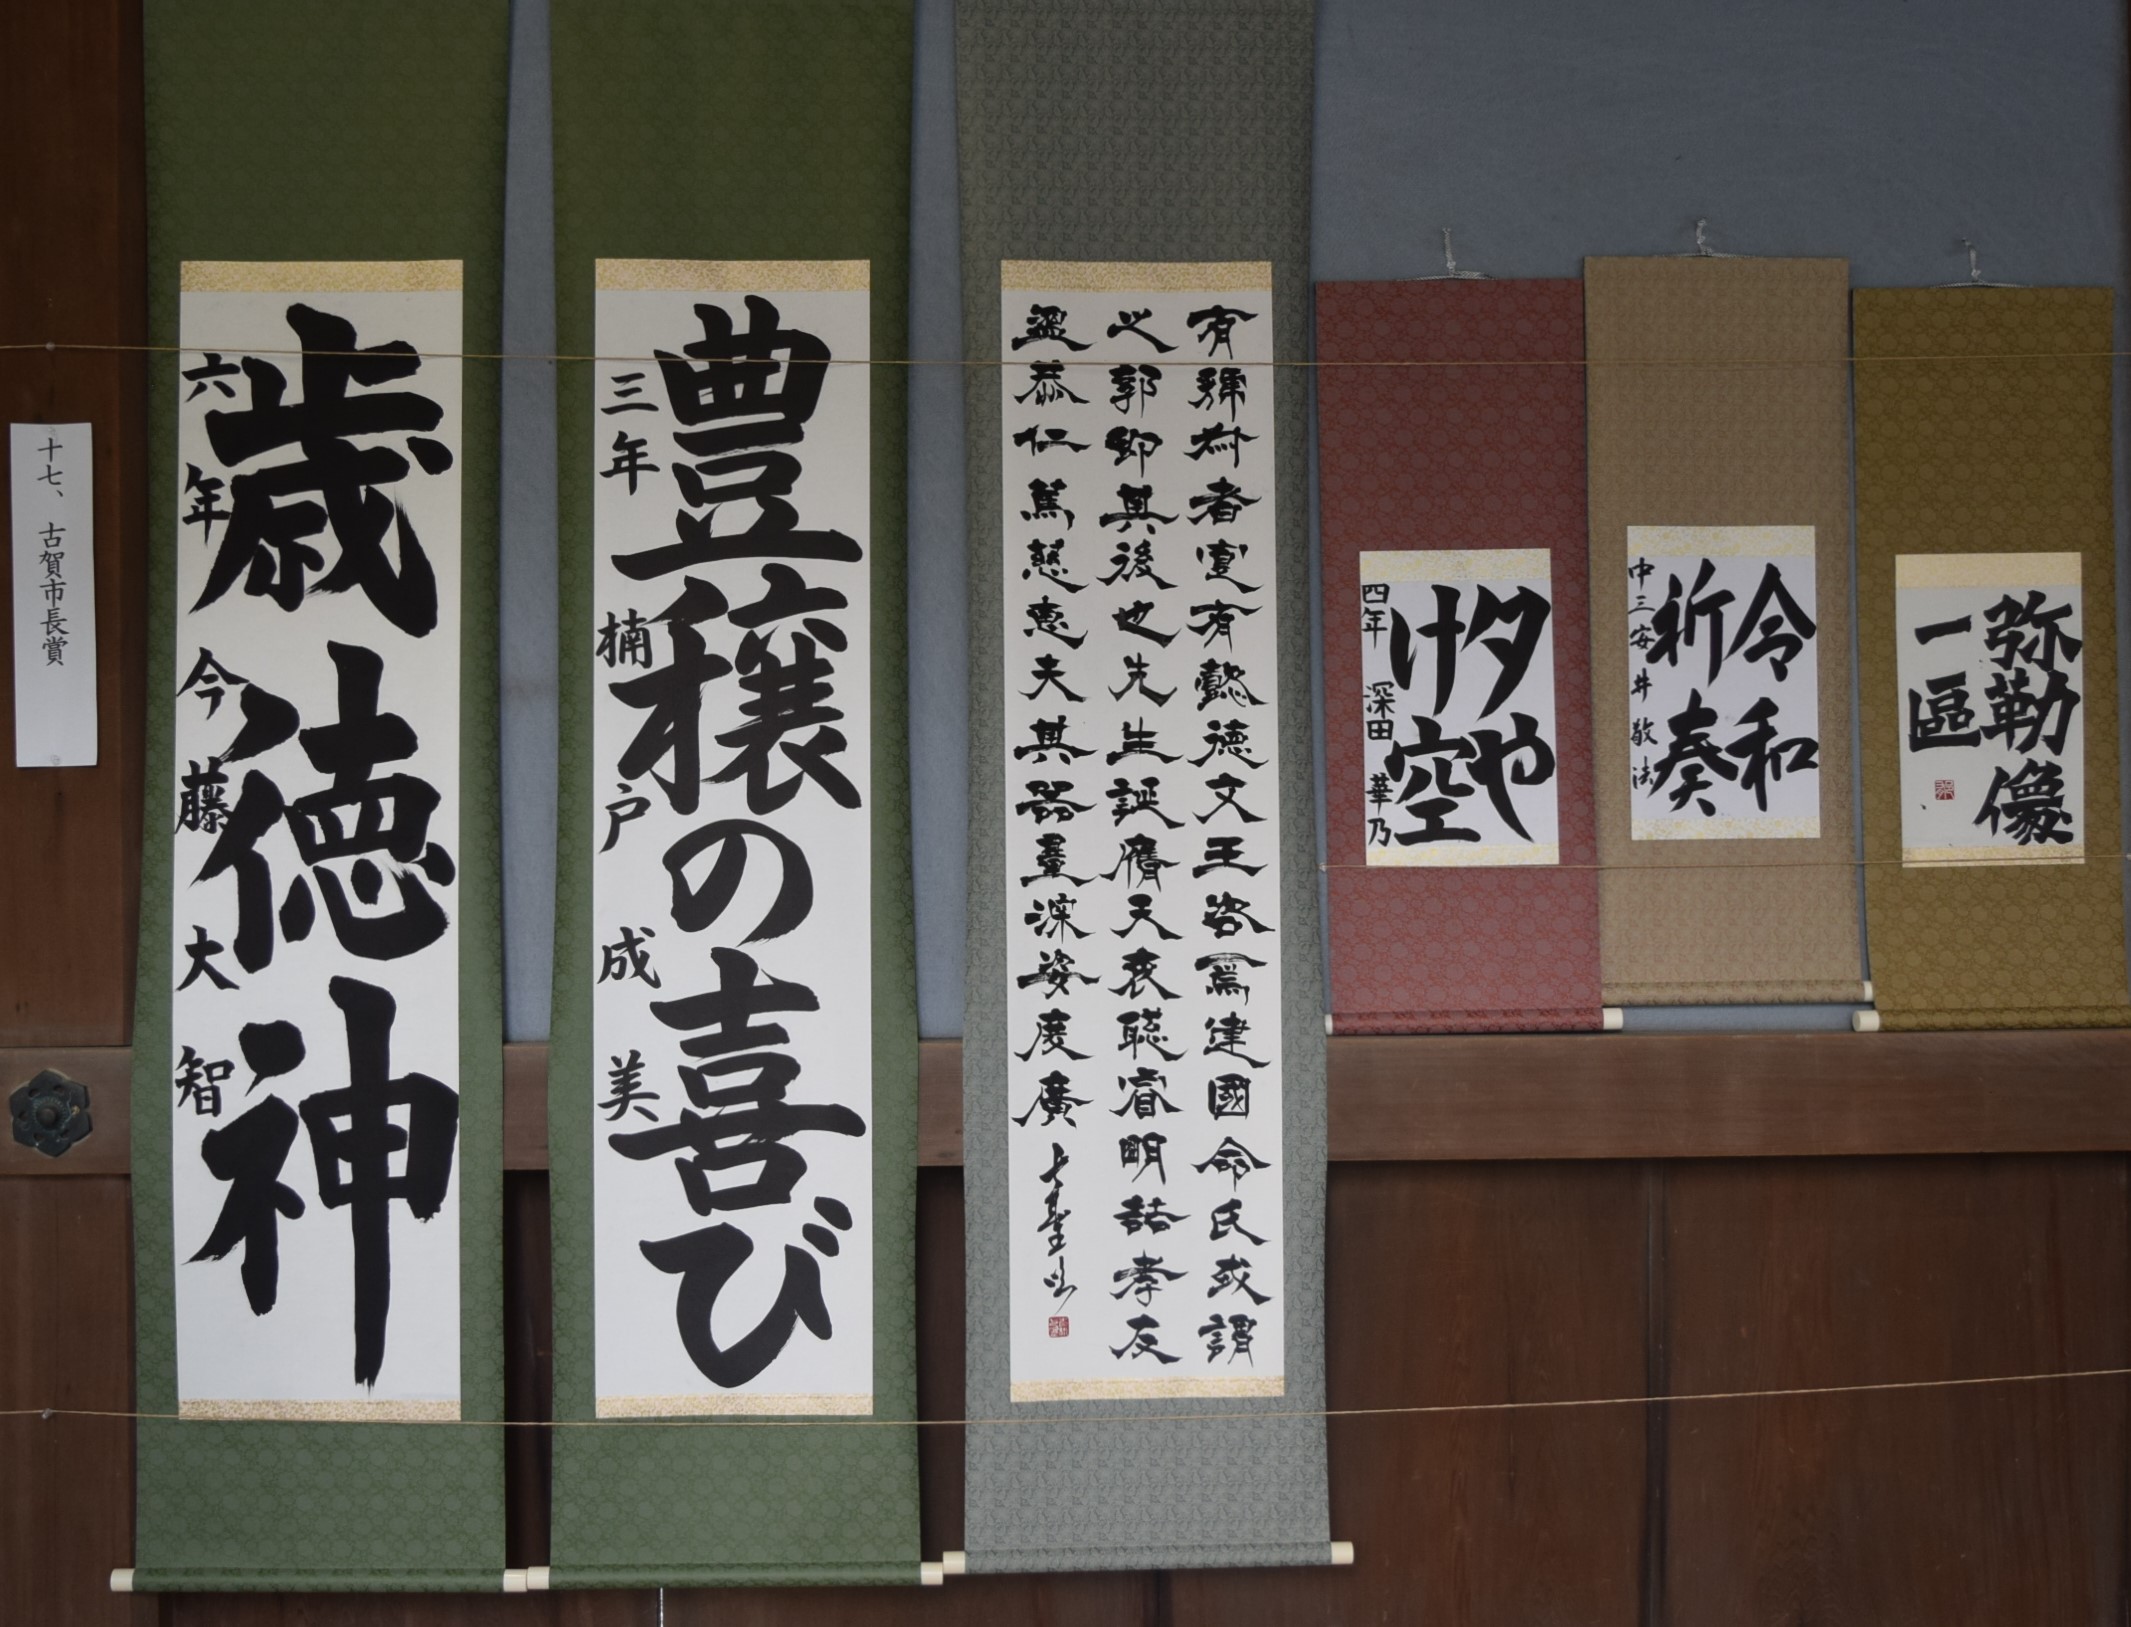 十七、古賀市長賞
歳徳神
六年 今藤大智
豊穣の喜び
三年 楠戸成美
有號為者寔有懿德文王咨焉建國命氏或謂
之郭即其後也先生誕膺天衷聡睿明詰孝友
温恭仁篤慈惠夫其器量深姿度廣
夕や
け空
四年 深田華乃
令和
祈奏
中三安井敬法
弥勒像
一區